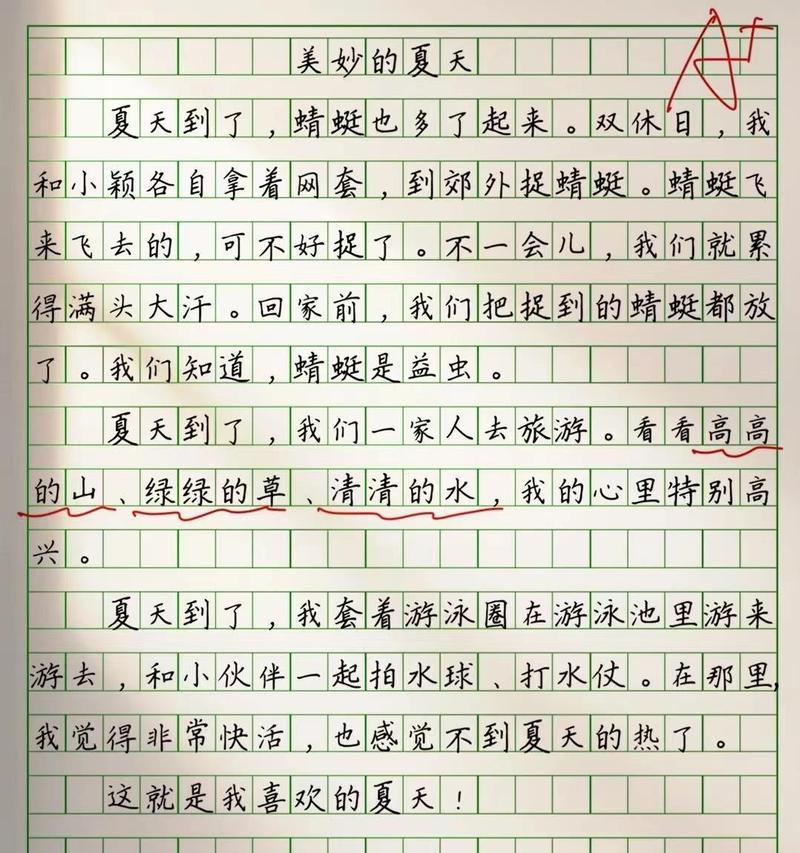 美妙的夏天
A+
夏天到了，蜻蜓也多了起来。双休日，我
和小颖各自拿着网套，到郊外捉蜻蜓。蜻蜓飞
来飞去的，可不好捉了。不一会儿，我们就累
得满头大汗。回家前，我们把捉到的蜻蜓都放
了。我们知道，蜻蜓是益虫。
夏天到了，我们一家人去旅游。看看高高
的山、绿绿的草、清清的水，我的心里特别高
兴。
夏天到了，我套着游泳圈在游泳池里游来
游去，和小伙伴一起拍水球、打水仗。在那里，
我觉得非常快活，也感觉不到夏天的热了。
这就是我喜欢的夏天！